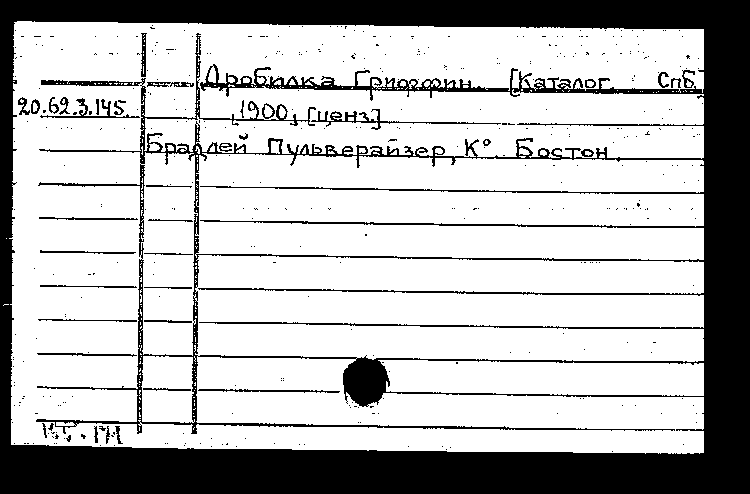 Дробилка Гриффин. [Каталог. Спб.]
20.62.3.145. ,1900, [ценз]
Брадлей Пульверайзер, К° Бостон.